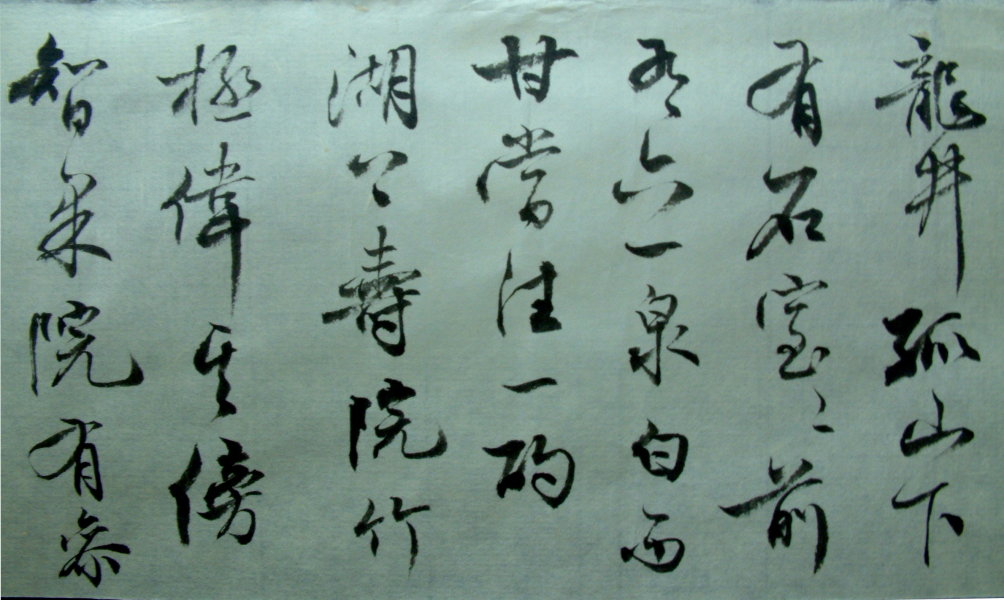 龍井孤山下
有石室〻前
有六一泉白而
甘當往一酌
湖上壽院竹
極偉其傍
智果院有參